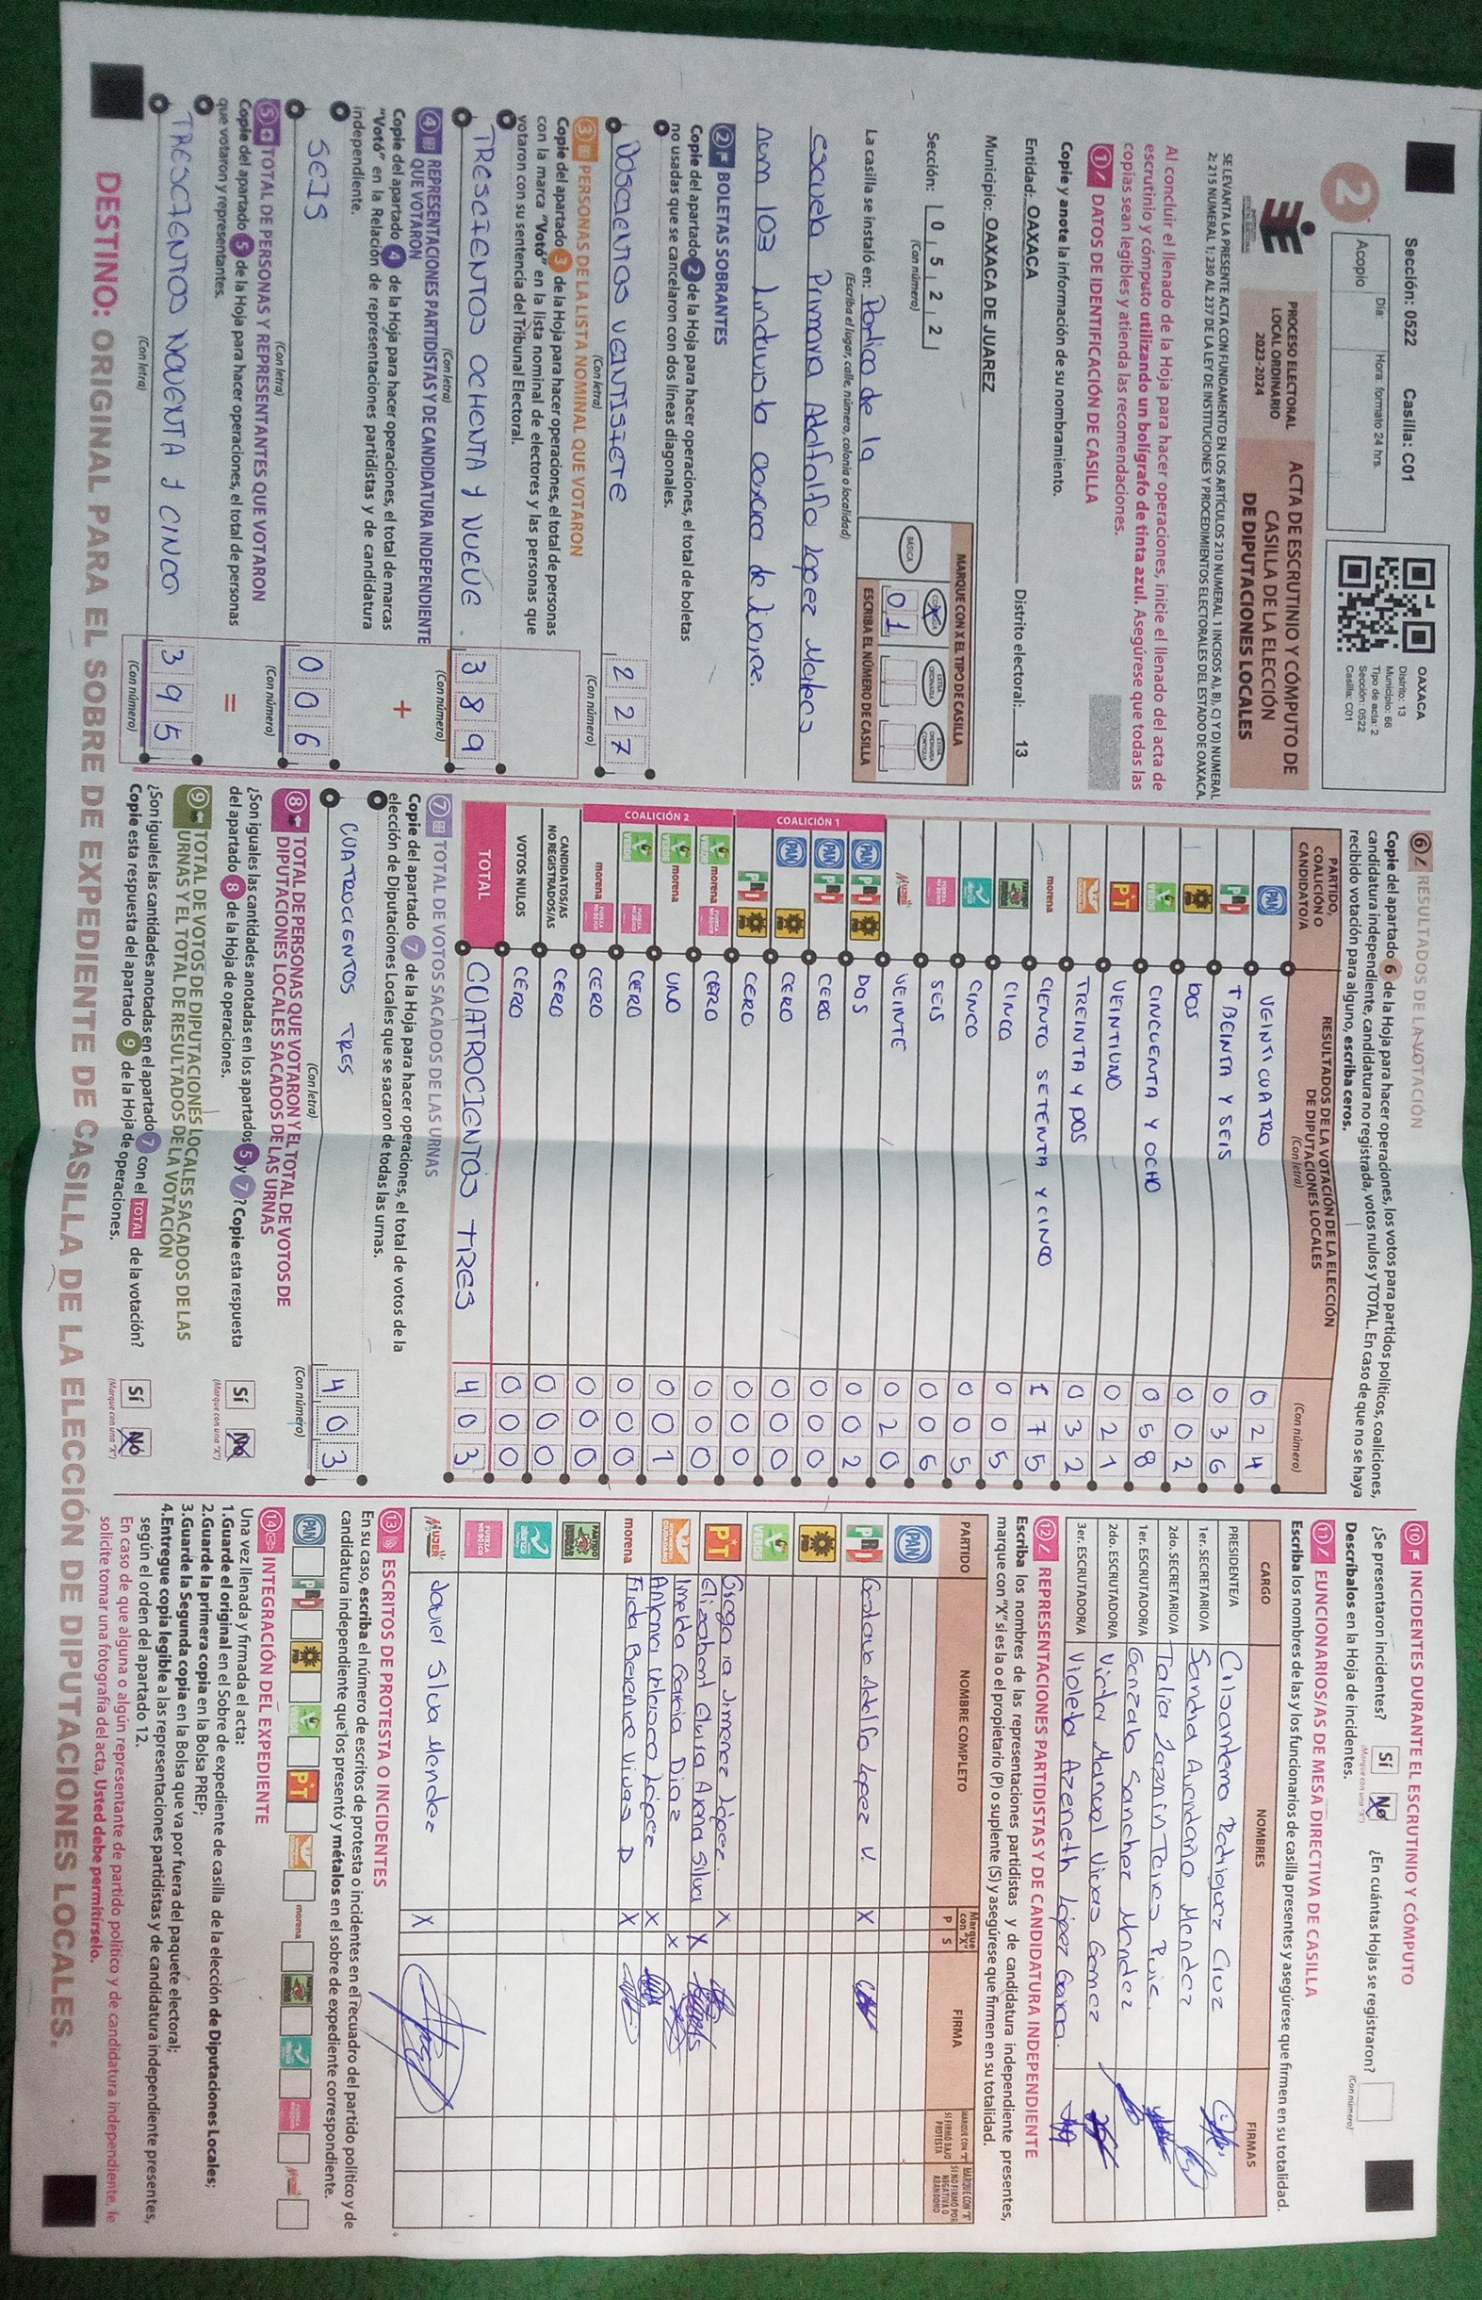 Sección: 0522 Casilla: C01
2
Acopio
Día:
Hora: formato 24 hrs.
OAXACA
Distrito: 13
Municipio: 66
Tipo de acta: 2
Sección: 0522
Casilla: C01
PROCESO ELECTORAL
LOCAL ORDINARIO
2023-2024
ACTA DE ESCRUTINIO Y CÓMPUTO DE
CASILLA DE LA ELECCIÓN
DE DIPUTACIONES LOCALES
SE LEVANTA LA PRESENTE ACTA CON FUNDAMENTO EN LOS ARTÍCULOS 210 NUMERAL 1 INCISOS A), B), C) Y D) NUMERAL
2; 215 NUMERAL 1; 230 AL 237 DE LA LEY DE INSTITUCIONES Y PROCEDIMIENTOS ELECTORALES DEL ESTADO DE OAXACA.
Al concluir el llenado de la Hoja para hacer operaciones, inicie el llenado del acta de
escrutinio y cómputo utilizando un bolígrafo de tinta azul. Asegúrese que todas las
copias sean legibles y atienda las recomendaciones.
1 DATOS DE IDENTIFICACIÓN DE CASILLA
Copie y anote la información de su nombramiento.
Entidad: OAXACA Distrito electoral: 13
Municipio: OAXACA DE JUAREZ
Sección: 0 5 2 2
(Con número)
MARQUE CON X EL TIPO DE CASILLA
BÁSICA X
ESCRIBA EL NÚMERO DE CASILLA
0 1
La casilla se instaló en: Portico de la
(Escriba el lugar, calle, número, colonia o localidad)
escuela Primaria Adolfo Lopez Mateos
num 103
2 BOLETAS SOBRANTES
Copie del apartado 2 de la Hoja para hacer operaciones, el total de boletas
no usadas que se cancelaron con dos líneas diagonales.
DOSCIENTOS VEINTISIETE 2 2 7
(Con letra) (Con número)
3 PERSONAS DE LA LISTA NOMINAL QUE VOTARON
Copie del apartado 3 de la Hoja para hacer operaciones, el total de personas
con la marca "Votó" en la lista nominal de electores y las personas que
votaron con su sentencia del Tribunal Electoral.
TRESCIENTOS OCHENTA Y NUEVE. 3 8 9
(Con letra) (Con número)
4 REPRESENTACIONES PARTIDISTAS Y DE CANDIDATURA INDEPENDIENTE
QUE VOTARON
Copie del apartado 4 de la Hoja para hacer operaciones, el total de marcas
"Votó" en la Relación de representaciones partidistas y de candidatura
independiente.
+
SEIS 0 0 6
(Con letra) (Con número)
5 TOTAL DE PERSONAS Y REPRESENTANTES QUE VOTARON
Copie del apartado 5 de la Hoja para hacer operaciones, el total de personas
que votaron y representantes.
=
TRESCIENTOS NOVENTA Y CINCO 3 9 5
(Con letra) (Con número)
6 RESULTADOS DE LA VOTACIÓN
Copie del apartado 6 de la Hoja para hacer operaciones, los votos para partidos políticos, coaliciones,
candidatura independiente, candidatura no registrada, votos nulos y TOTAL. En caso de que no se haya
recibido votación para alguno, escriba ceros.
PARTIDO,
COALICIÓN O
CANDIDATO/A
RESULTADOS DE LA VOTACIÓN DE LA ELECCIÓN
DE DIPUTACIONES LOCALES
(Con letra) (Con número)
PAN VEINTICUATRO 0 2 4
PRI TREINTA Y SEIS 0 3 6
DOS 0 0 2
VERDE CINCUENTA Y OCHO 0 5 8
PT VEINTIUNO 0 2 1
TREINTA Y DOS 0 3 2
morena CIENTO SETENTA Y CINCO 1 7 5
CINCO 0 0 5
CINCO 0 0 5
SEIS 0 0 6
MUJER VEINTE 0 2 0
COALICIÓN 1
PAN PRI DOS 0 0 2
PAN PRI CERO 0 0 0
PAN CERO 0 0 0
PRI CERO 0 0 0
COALICIÓN 2
VERDE morena CERO 0 0 0
VERDE morena UNO 0 0 1
VERDE CERO 0 0 0
morena CERO 0 0 0
CANDIDATOS/AS
NO REGISTRADOS/AS CERO 0 0 0
VOTOS NULOS CERO 0 0 0
TOTAL CUATROCIENTOS TRES 4 0 3
7 TOTAL DE VOTOS SACADOS DE LAS URNAS
Copie del apartado 7 de la Hoja para hacer operaciones, el total de votos de la
elección de Diputaciones Locales que se sacaron de todas las urnas.
CUATROCIENTOS TRES 4 0 3
(Con letra) (Con número)
8 TOTAL DE PERSONAS QUE VOTARON Y EL TOTAL DE VOTOS DE
DIPUTACIONES LOCALES SACADOS DE LAS URNAS
¿Son iguales las cantidades anotadas en los apartados 5 y 7? Copie esta respuesta
del apartado 8 de la Hoja de operaciones.
Sí No
(Marque con una "X")
9 TOTAL DE VOTOS DE DIPUTACIONES LOCALES SACADOS DE LAS
URNAS Y EL TOTAL DE RESULTADOS DE LA VOTACIÓN
¿Son iguales las cantidades anotadas en el apartado 7 con el TOTAL de la votación?
Copie esta respuesta del apartado 9 de la Hoja de operaciones.
Sí No
(Marque con una "X")
10 INCIDENTES DURANTE EL ESCRUTINIO Y CÓMPUTO
¿Se presentaron incidentes? Sí No ¿En cuántas Hojas se registraron?
(Marque con una "X") (Con número)
Descríbalos en la Hoja de incidentes.
11 FUNCIONARIOS/AS DE MESA DIRECTIVA DE CASILLA
Escriba los nombres de las y los funcionarios de casilla presentes y asegúrese que firmen en su totalidad.
CARGO NOMBRES FIRMAS
PRESIDENTE/A Crisantema Rodriguez Cruz
1er. SECRETARIO/A Sandra Avendaño Mendez
2do. SECRETARIO/A Talia Jazmin
1er. ESCRUTADOR/A Gonzalo Sanchez Mendez
2do. ESCRUTADOR/A Victor Manuel Vivas Gomez
3er. ESCRUTADOR/A Violeta Azeneth López García.
12 REPRESENTACIONES PARTIDISTAS Y DE CANDIDATURA INDEPENDIENTE
Escriba los nombres de las representaciones partidistas y de candidatura independiente presentes,
marque con "X" si es la o el propietario (P) o suplente (S) y asegúrese que firmen en su totalidad.
PARTIDO NOMBRE COMPLETO Marque con "X" P S FIRMA
MARQUE CON "X" SI FIRMÓ BAJO PROTESTA
MARQUE CON "X" SI NO FIRMÓ POR NEGATIVA O ABANDONO
PAN
PRI Gustavo Adolfo Lopez V. X
VERDE
Gregoria Jimenez López. X
PT Elizabeth Silva X
Imelda Garcia Diaz X
Antonia Velasco López X
morena Frida Berenice Vivas D X
MUJER Javier Silva Mendez X
13 ESCRITOS DE PROTESTA O INCIDENTES
En su caso, escriba el número de escritos de protesta o incidentes en el recuadro del partido político y de
candidatura independiente que los presentó y métalos en el sobre de expediente correspondiente.
PAN PRI PRD VERDE PT morena
14 INTEGRACIÓN DEL EXPEDIENTE
Una vez llenada y firmada el acta:
1.Guarde el original en el Sobre de expediente de casilla de la elección de Diputaciones Locales;
2.Guarde la primera copia en la Bolsa PREP;
3.Guarde la Segunda copia en la Bolsa que va por fuera del paquete electoral;
4.Entregue copia legible a las representaciones partidistas y de candidatura independiente presentes,
según el orden del apartado 12.
En caso de que alguna o algún representante de partido político y de candidatura independiente, le
solicite tomar una fotografía del acta, Usted debe permitírselo.
DESTINO: ORIGINAL PARA EL SOBRE DE EXPEDIENTE DE CASILLA DE LA ELECCIÓN DE DIPUTACIONES LOCALES.